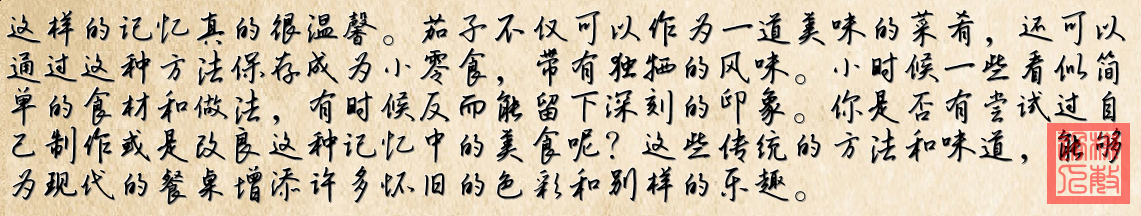 这样的记忆真的很温馨。茄子不仅可以作为一道美味的菜肴，还可以
通过这种方法保存成为小零食，带有独牺的风味。小时候一些看似简
单的食材和做法，有时候反而能留下深刻的印象。你是否有尝试过自
己制作或是改良这种记忆中的美食呢？这些传统的方法和味道，能够
为现代的餐桌增添许多怀旧的色彩和别样的乐趣。